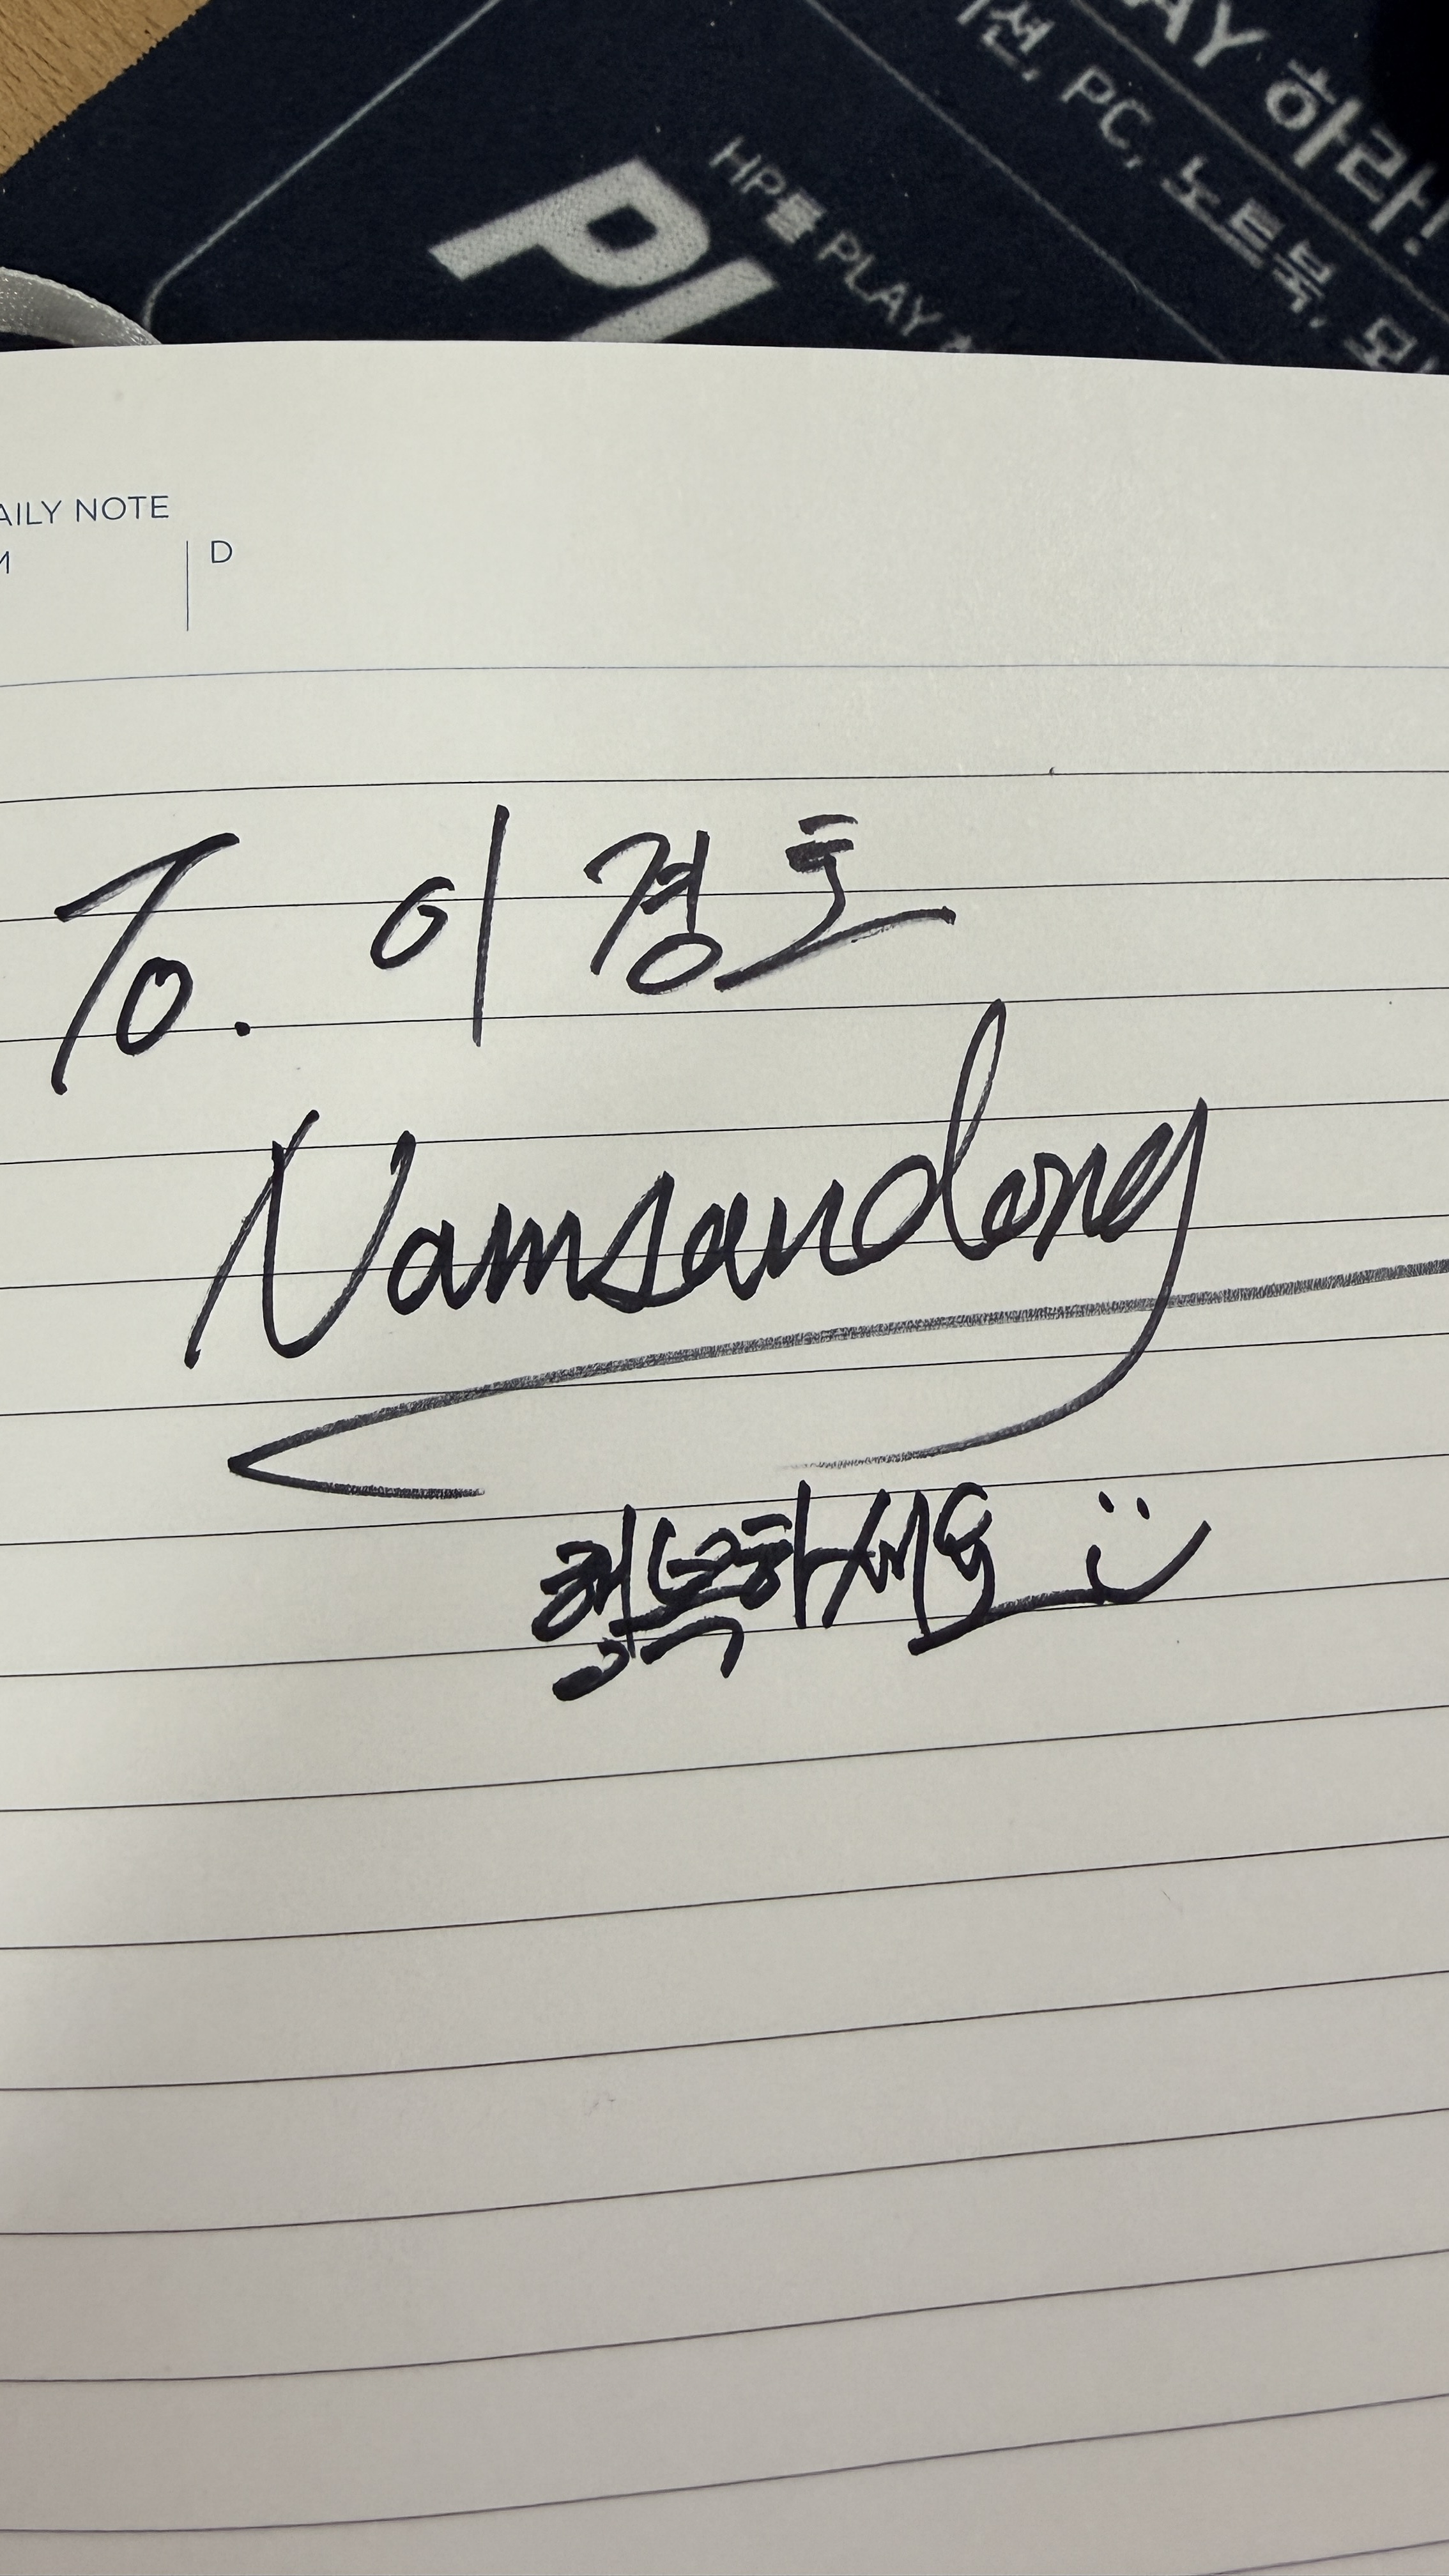 AY 하라!
션, PC, 노트북, 모
HP를 PLAY
PL
AILY NOTE
M D
To. 이경호
Namsandong
행복하세요